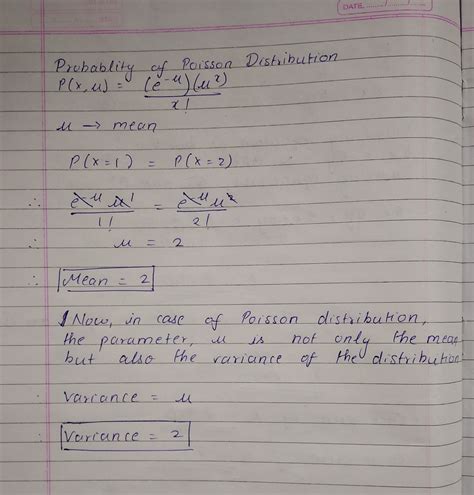 DATE
Probablity of Poisson Distribution
P(x, μ) = (e^-μ)(μ^x) / x!
μ → mean
P(x=1) = P(x=2)
∴ e^-μ μ^1 / 1! = e^-μ μ^2 / 2!
∴ μ = 2
∴ Mean = 2
Now, in case of Poisson distribution,
the parameter, μ is not only the mean
but also the variance of the distribution
∴ Variance = μ
Variance = 2